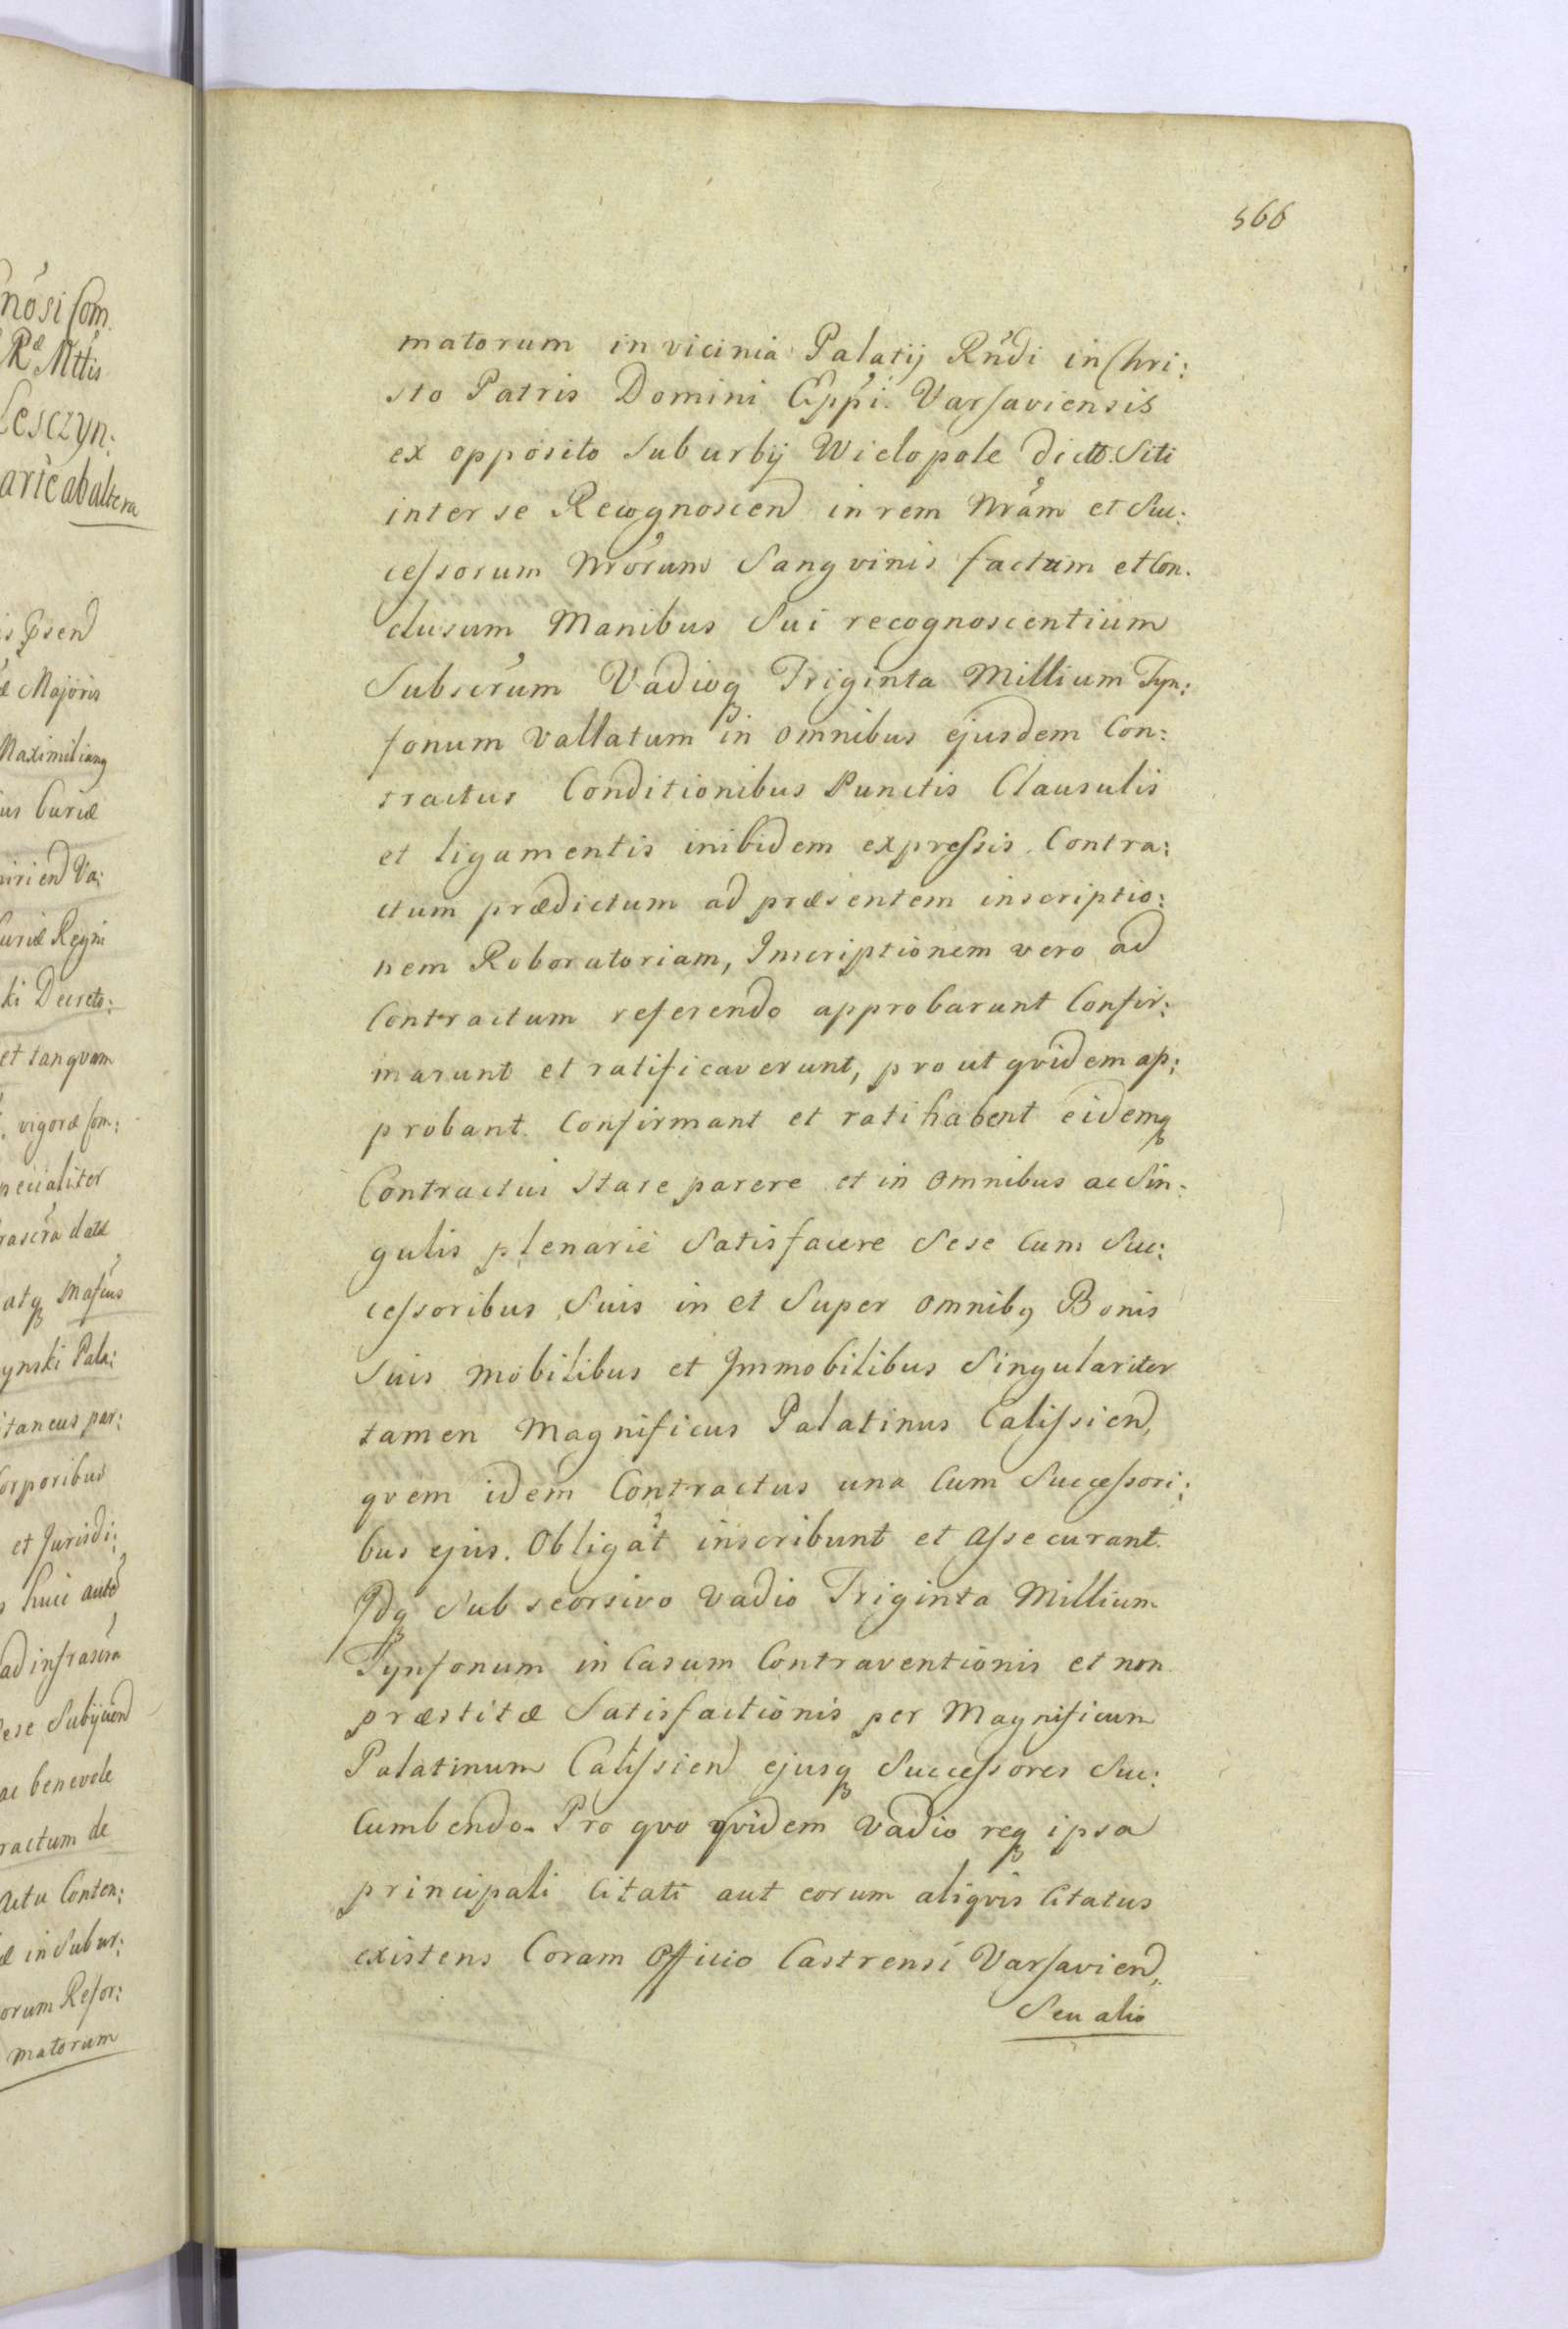 566
matorum in vicinia Palatij Rńdi in Chri:
sto Patris Domini Eppi. Varsaviensis
ex opposito Suburbij Wielopole dictt. Siti
inter se Recognoscend in rem Nrám et Suc:
cessorum Nrórum Sangvinis factum et Con.
clusum Manibus Sui recognoscentium
Subscrúm Vadioq Triginta Millium Tyn:
fonum Vallatum in omnibus ejusdem Con:
tractus Conditionibus Punctis Clausulis
et ligamentis inibidem expressis. Contra:
ctum prædictum ad præsentem inscriptio:
nem Roboratoriam, Inscriptionem vero ad
Contractum referendo approbarunt Confir:
marunt et ratificaverunt, pro ut qvidem ap:
probant. Confirmant et ratihabent eidemq
Contractui Stare parere et in omnibus ac Sin:
gulis plenarie Satisfacere Sese Cum Suc:
cessoribus Suis in et Super omnibq Bonis
Suis mobilibus et Immobilibus Singulariter
tamen Magnificus Palatinus Calissiend,
qvem idem Contractus una Cum Successori:
bus ejus. Obligát inscribunt et Assecurant.
Idq Sub seorsivo Vadio Triginta Millium
Tynfonum in Casum Contraventionis et non
præstitæ Satisfactionis per Magnificum
Palatinum Calissiend ejusq Successores Suc:
Cumbendo. Pro qvo qvidem Vadio req ipsa
principali Citati aut eorum aliqvis Citatus
existens Coram Officio Castrensi Varsaviend,
Seu alio
nósi Com.
Rᵆ Mttis
Lesczyn:
arte ab altera
is Psend
æ Majoris
Maximilianq
us Curiæ
niriend Va:
Curiæ Regni
ki Decreto:
et tanqvam
vigoræ som:
pecialiter
rascra datæ
atq Masius
ynski Pala:
itaneus par:
Corporibus
et Jurisdi:
huic autё
ad infrascra
ese Subijciend
ac benevole
ractum de
Actu Conten:
æ in Subur:
orum Refor:
matorum